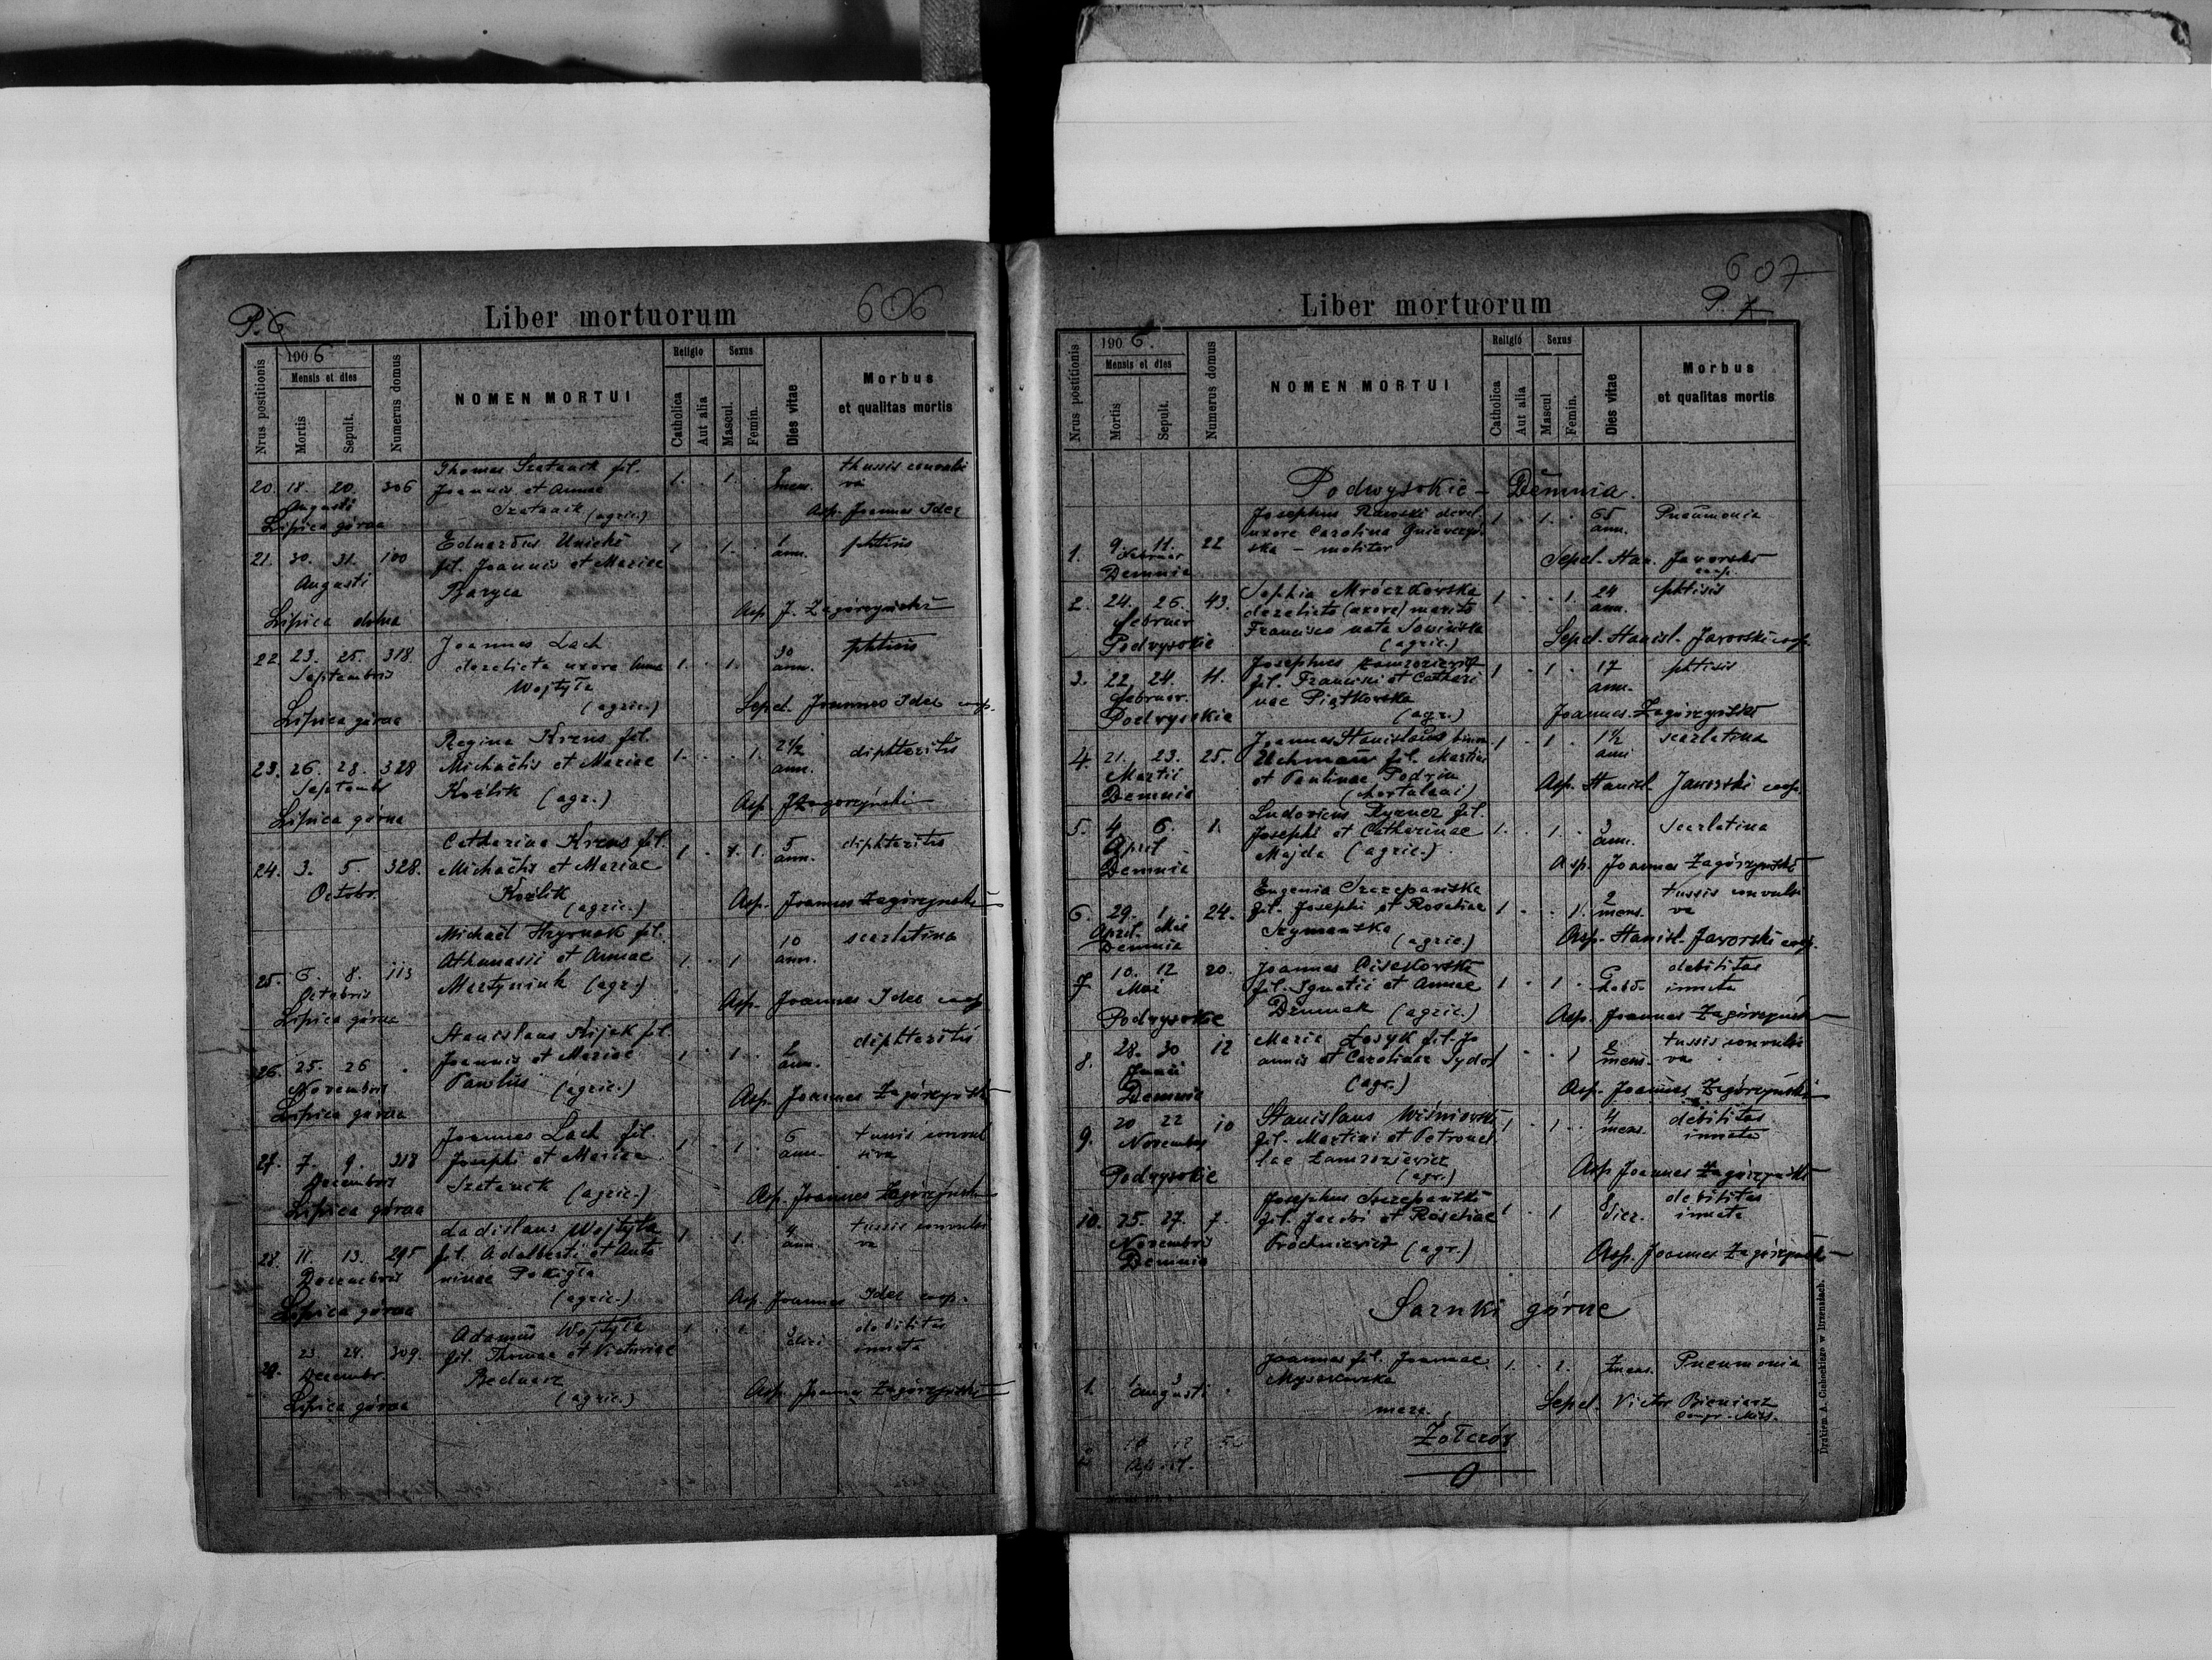 P. 6
Liber mortuorum
606
Nrus postitionis
1906
Mensis et dies
Mortis
Sepult.
Numerus domus
NOMEN MORTUI
Religio
Catholica
Aut alia
Sexus
Mascul.
Femin.
Dies vitae
Morbus
et qualitas mortis
20. 18. 20. 306 Thomas fil. 1. 1. mens. thussis convulsi
Augusti Joannis et Annae va
Lipica górna (agric.) Asp. Joannes Idec
21. 30. 31. 100 Eduardus 1 1. 1 ann. phtisis
Augusti fil. Joannis et Mariae
Baryca
Lipica dolna Asp. J. Zagórzyński
22. 23. 25. 318 Joannes Lach 1. 1. 30 ann. phtisis
Septembris derelicta uxore Anna
Wojtyła
Lipica górna (agric.) Sepel. Joannes Idec coop.
23. 26. 28. 328 Regina Krens fil. 1. 1. 2½ ann. diphteritis
Septembr Michaëlis et Mariae
Lipica górna Koźlik (agr.) Asp. J. Zagórzyński
24. 3. 5. 328. Catharina Krens fil. 1 1. 5 ann. diphteritis
Octobr. Michaëlis et Mariae
Koźlik
(agric.) Asp. Joannes Zagórzyński
25. 6. 8. 113 Michaël Hrynak fil. 1. 1 10 ann. scarlatina
Octobris Athanasii et Annae
Lipica górna Martyniuk (agr.) Asp. Joannes Idec coop
26. 25. 26 Stanislaus Kijak fil. 1 1 2 ann. diphteritis
Novembris Joannis et Mariae
Lipica górna Pawlus (agric.) Asp. Joannes Zagórzyński
27. 7. 9. 318 Joannes Lach fil. 1 1 6 ann. tussis convul
Decembris Josephi et Mariae siva
Lipica górna (agric.) Asp. Joannes Zagórzyński
28. 11. 13. 295 Ladislaus Wojtyła 1 1. 4 ann. tussis convulsi
Decembris fil. Adalberti et Anto va
ninae
Lipica górna (agric.) Asp. Joannes Idec coop.
29. 23. 24. 309. Adamus Wojtyła 1 1. debilitas
Decembr. fil. Thomae et Victoriae innata
Lipica górna Bednarz
(agric.) Asp. Joannes Zagórzyński
607
P. 7
Liber mortuorum
Nrus postitionis
1906.
Mensis et dies
Mortis
Sepult.
Numerus domus
NOMEN MORTUI
Religio
Catholica
Aut alia
Sexus
Mascul
Femin.
Dies vitae
Morbus
et qualitas mortis
Podwysokie – Demnia.
1. 9 11. 22 Josephus derel. 1 1. 65 ann. Pneumonia
Februar uxore Carolina
Demnia ska – molitor Sepel. Stan. Jaworski coop.
2. 24. 26. 43. Sophia Mroczkowska 1 1. 24 ann. phtisis
Februar derelicto (uxore) marito
Podwysokie Francisco nata Sowińska
(agric.) Sepel. Stanisl. Jaworski coop.
3. 22. 24. 11. Josephus Zamrozievicz 1 1 17 ann. phtisis
Februar. fil. Francisci et Cathari
Podwysokie nae Piątkowska
(agr.) Joannes Zagórzyński
4. 21. 23. 25. Joannes Stanislaus binom. 1 1 1½ anni scarlatina
Martii Uchman fil. Martini
Demnia et Paulinae
Asp. Stanisl. Jaworski coop.
5. 4 6. 1. Ludovicus fil. 1. 1. 3 ann. scarlatina
April Josephi et Catharinae
Demnia Majda (agric.) Asp. Joannes Zagórzyński
6. 29. 1. 24. Eugenia Szczepańska 1 1. 2 mens. tussis convulsi
April. Mai fil. Josephi et Rosaliae va
Demnia Szymańska (agric.) Asp. Stanisl. Jaworski coop.
7 10. 12 20. Joannes 1 1 debilitas
Mai fil. Ignatii et Annae innata
Podwysokie (agric.) Asp. Joannes Zagórzyński
8. 28. 30 12 Maria fil. Jo 1 1 2 mens. tussis convulsi
annis et Carolinae va
Demnia (agr.) Asp. Joannes Zagórzyński
9. 20 22 10 Stanislaus Wiśniowski 1 1 4 mens. debilitas
Novembr fil. Martini et Petronel innata
Podwysokie lae Zamrozievicz
(agr.) Asp Joannes Zagórzyński
10. 25. 27. 7. Josephus Szczepański 1 1 debilitas
Novembris fil. Jacobi et Rosaliae innata
Demnia Próchnievicz (agr.) Asp. Joannes Zagórzyński
Sarnki górne
1. 1 3 Joannes fil. Joannae 1. 1. mens. Pneumonia
Augusti
Sepel. Victor Bieniasz
Congr. Miss.
Żołczów
0
2 10 12 5
April.
Drukiem A. Ciabeckiego w Brzezanach.